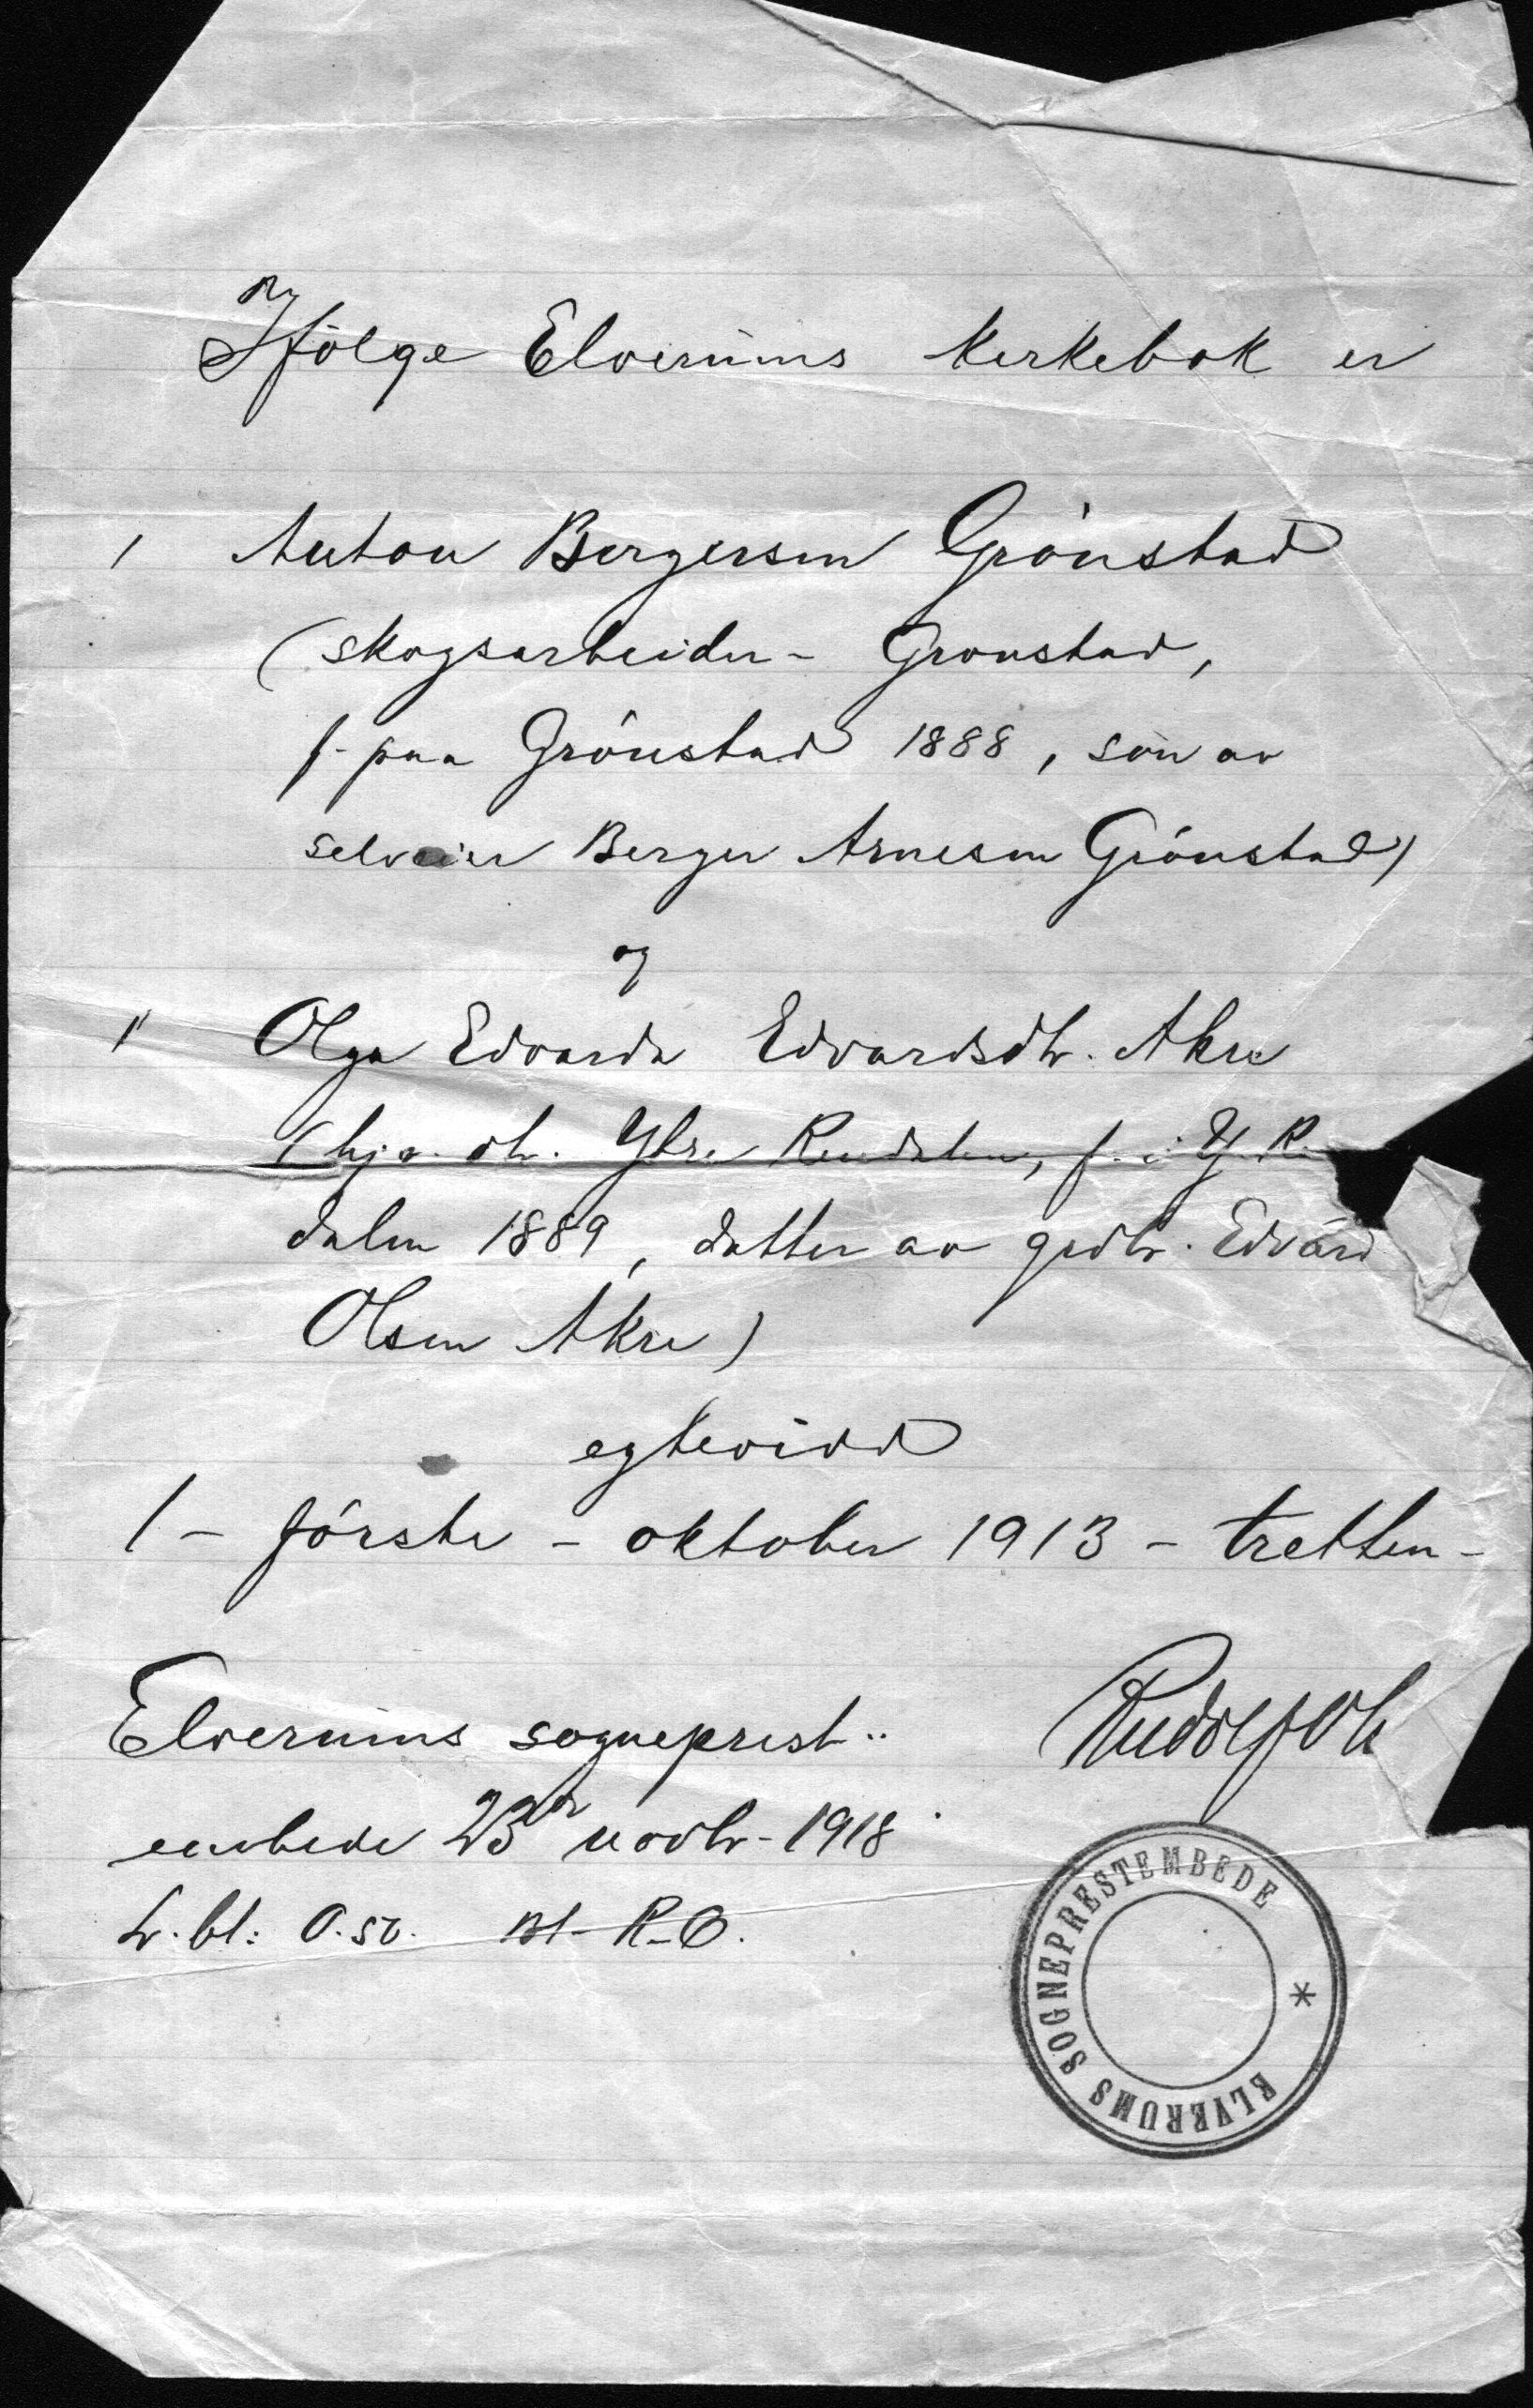 Ifölge Elverums kirkebok er
/ Anton Bergersen Grönstad
(skogsarbeider - Gronstad,
f. paa Grönstad 1888, sön av
selveier Berger Arnesen Grönstad)
og
" Olga Edvarda Edvardsdtr. Akre
(hj. dtr. Ytre Rendalen, f. i Y. R.
dalen 1889, datter av grdbr. Edvard
Olsen Akre)
egteviDD
1 - förste - oktober 1913 - tretten -
Elverums sogneprest-
embede 23 novbr. 1918
Rudolf
bl: 0.50. Bt. R.O.
ELVERUMS SOGNEPRESTEMBEDE *